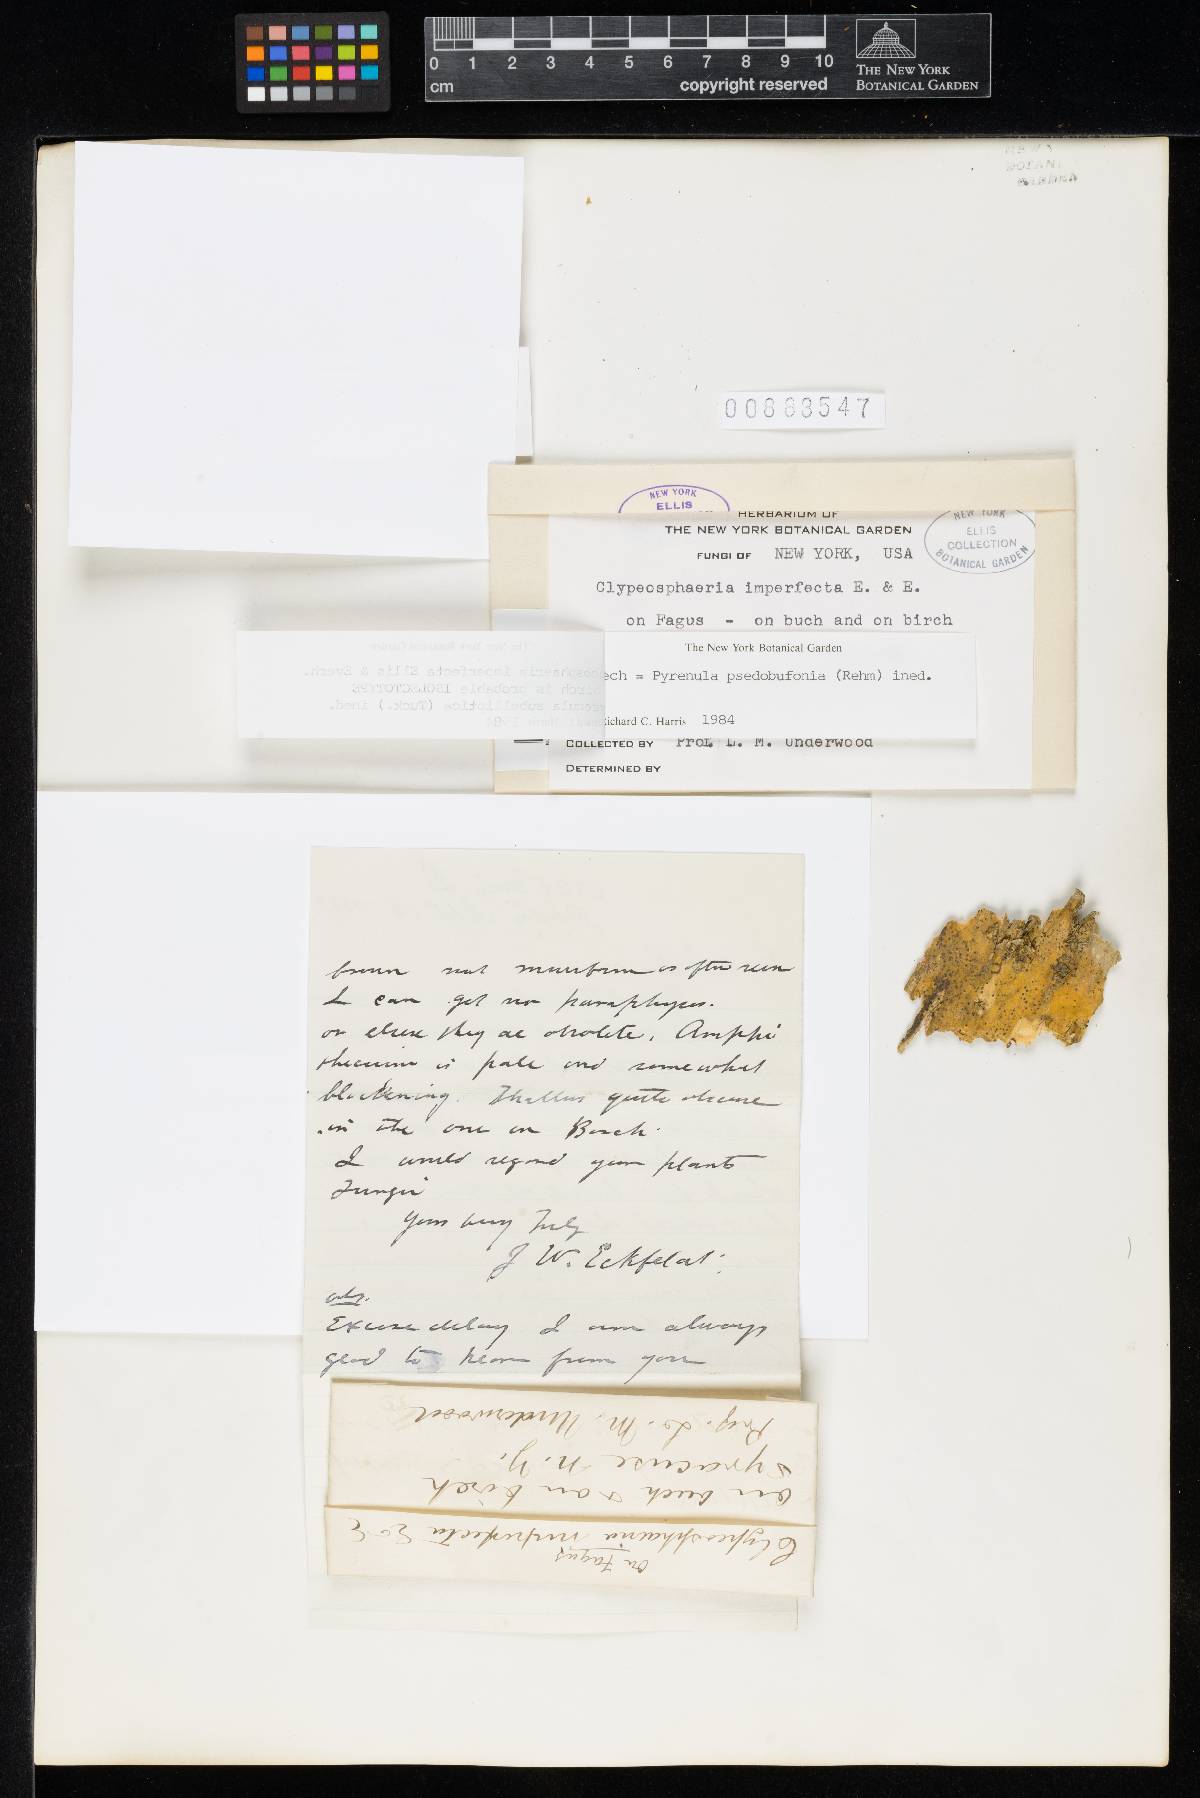 0 1 2 3 4 5 6 7 8 9 10
cm
copyright reserved
THE NEW YORK
BOTANICAL GARDEN
00883547
NEW YORK
ELLIS
HERBARIUM OF
THE NEW YORK BOTANICAL GARDEN
FUNGI OF NEW YORK, USA
NEW YORK
ELLIS
COLLECTION
BOTANICAL GARDEN
Clypeosphaeria imperfecta E. & E.
on Fagus - on buch and on birch
The New York Botanical Garden
ech = Pyrenula psedobufonia (Rehm) ined.
Richard C. Harris 1984
COLLECTED BY Prof. L. M. Underwood
DETERMINED BY
osphaeria imperfecta Ellis & Everh.
birch is probable ISOLECTOTYPE
renula subelliptica (Tuck.) ined.
brown not muriform as often seen
I can get no paraphyses.
or else they are obsolete. Amphi
thecium is pale and somewhat
blackening. Thallus quite obscure
in the one on Birch.
I would regard your plants
Fungi
Yours very Truly
J W. Eckfeldt
Excuse delay I am always
glad to hear from you
On Fagus
Clypeosphaeria imperfecta E & E
on buch & on birch
Syracuse N. Y.
Prof. L. M. Underwood